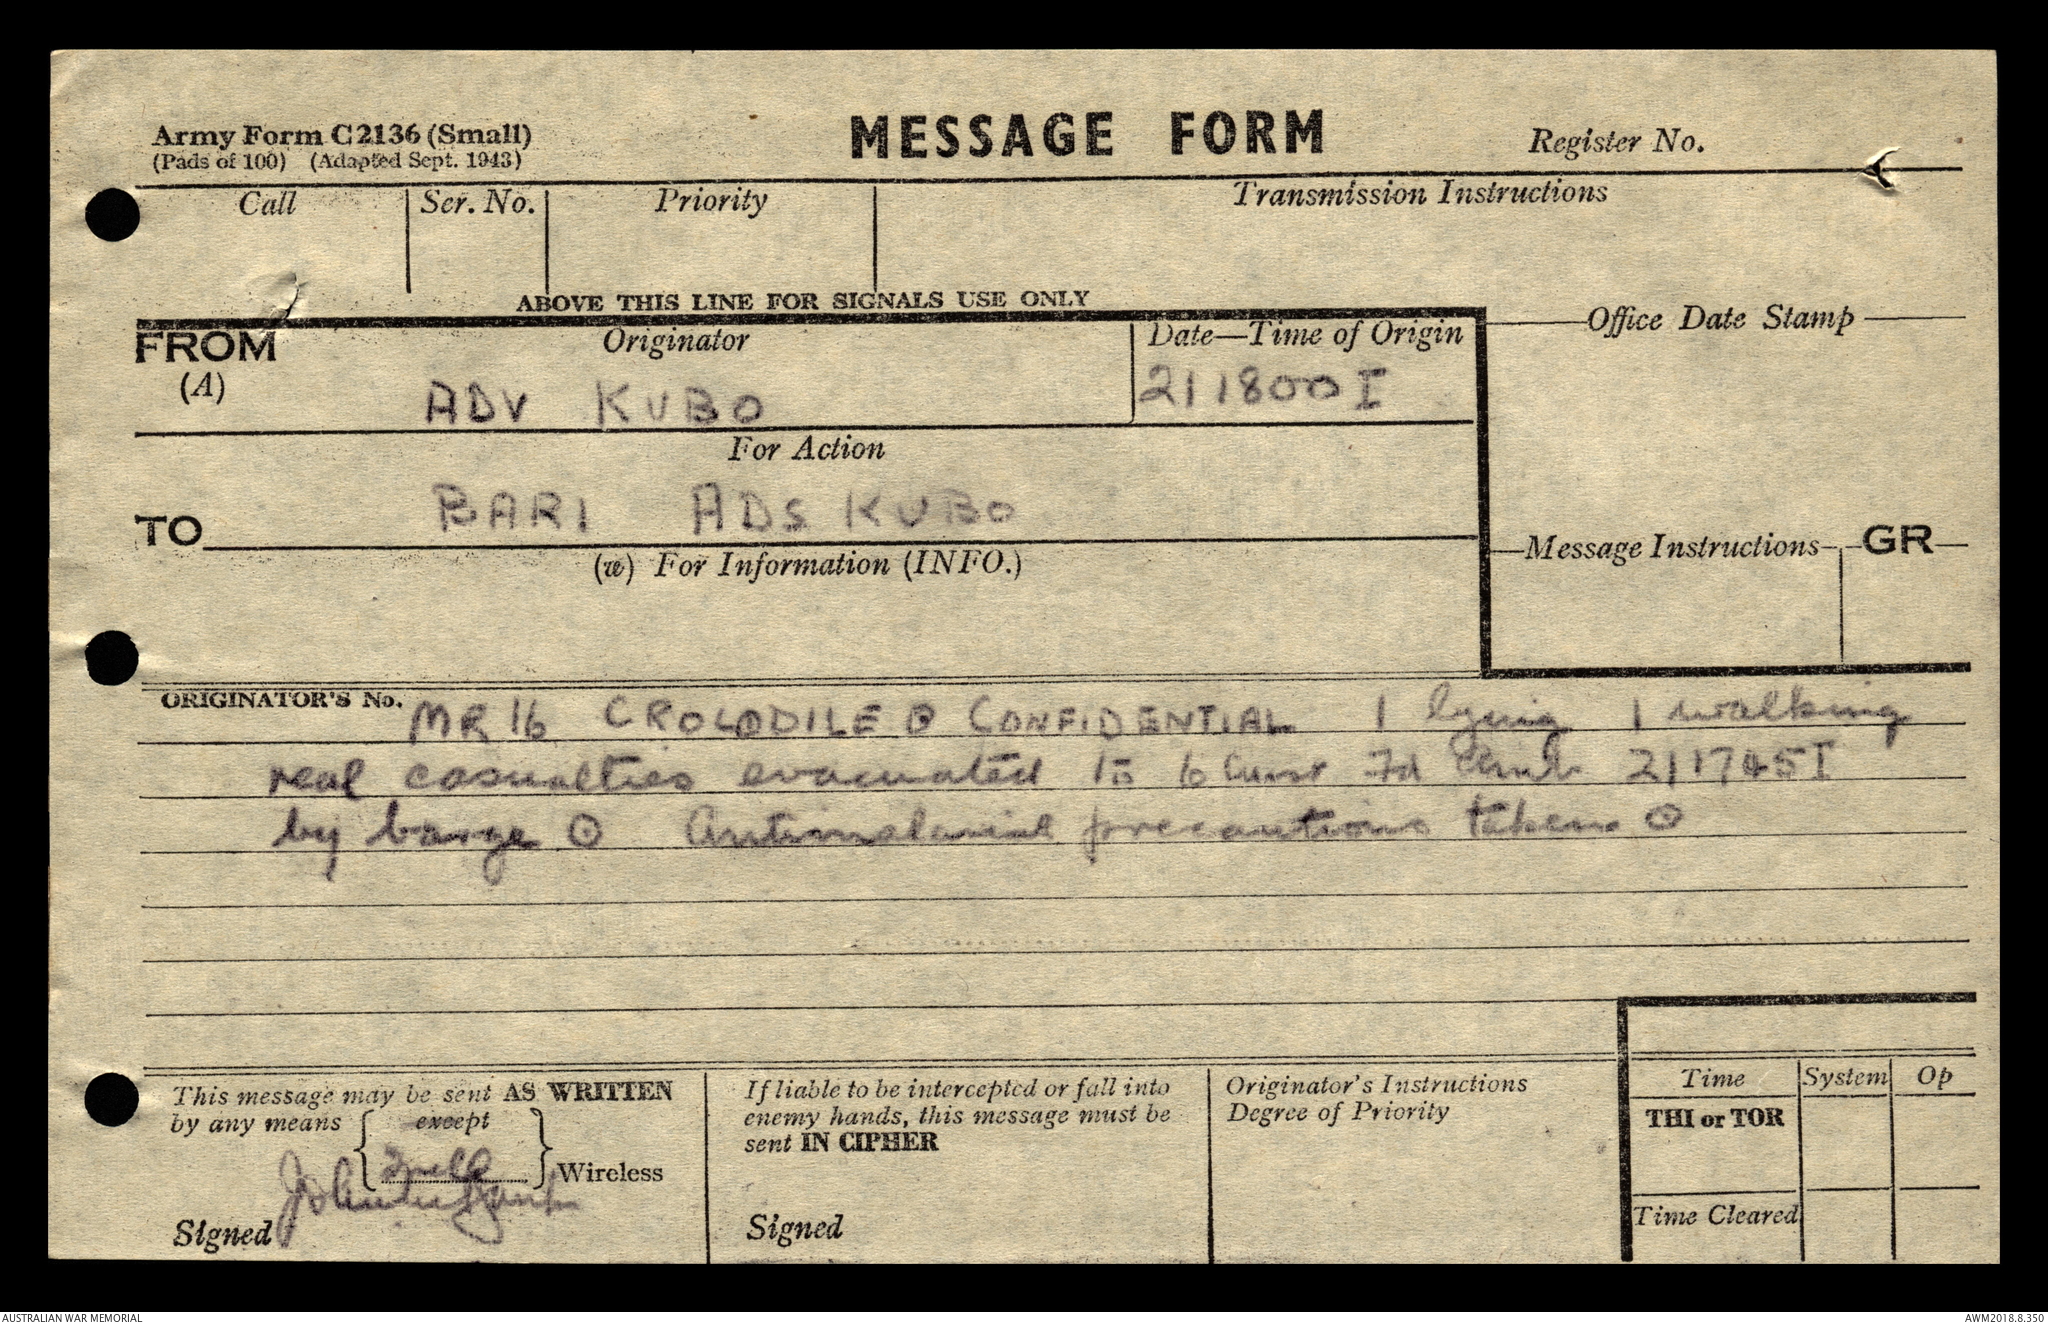 Army Form C2136 (Small)
(Pads of 100) (Adapted Sept. 1943)
MESSAGE FORM
Register No.
Call
Ser. No.
Priority
Transmission Instructions
ABOVE THIS LINE FOR SIGNALS USE ONLY
FROM
(A)
Originator
ADV KUBO
Date—Time of Origin
211800 I
Office Date Stamp
For Action
TO
BARI ADS KUBO
(w) For Information (INFO.)
Message Instructions
GR
ORIGINATOR'S No.
MR 16 CROCODILE ⊙ CONFIDENTIAL 1 lying 1 walking
real casualties evacuated to 6 Aust Fd Amb 211745 I
by barge ⊙ Antimalarial precautions taken ⊙
This message may be sent AS WRITTEN
by any means { except } Wireless
Signed
If liable to be intercepted or fall into
enemy hands, this message must be
sent IN CIPHER
Signed
Originator's Instructions
Degree of Priority
Time
System
Op
THI or TOR
Time Cleared
AUSTRALIAN WAR MEMORIAL
AWM2018.8.350